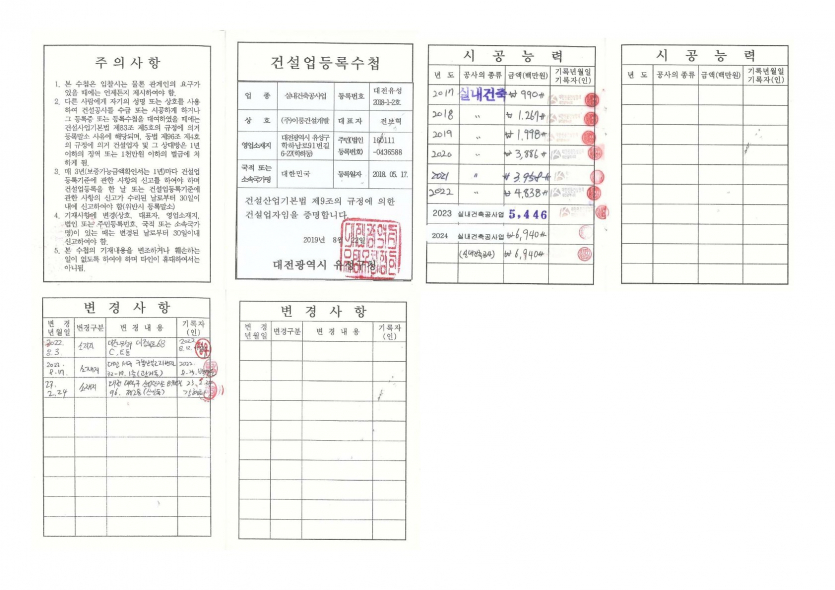 주 의 사 항
1. 본 수첩은 입찰시는 물론 관계인의 요구가
있을 때에는 언제든지 제시하여야 함.
2. 다른 사람에게 자기의 성명 또는 상호를 사용
하여 건설공사를 수급 또는 시공하게 하거나
그 등록증 또는 등록수첩을 대여하였을 때에는
건설산업기본법 제83조 제5호의 규정에 의거
등록말소 사유에 해당되며, 동법 제96조 제4호
의 규정에 의거 건설업자 및 그 상대방은 1년
이하의 징역 또는 1천만원 이하의 벌금에 처
하게 됨.
3. 매 3년(보증가능금액확인서는 1년)마다 건설업
등록기준에 관한 사항의 신고를 하여야 하며
건설업등록을 한 날 또는 건설업등록기준에
관한 사항의 신고가 수리된 날로부터 30일이
내에 신고하여야 함(위반시 등록말소)
4. 기재사항에 변경(상호, 대표자, 영업소재지,
법인 또는 주민등록번호, 국적 또는 소속국가
명)이 있는 때는 변경된 날로부터 30일이내
신고하여야 함.
5. 본 수첩의 기재내용을 변조하거나 훼손하는
일이 없도록 하여야 하며 타인이 휴대하여서는
아니됨.
건설업등록수첩
업 종 실내건축공사업 등록번호 대전유성
2018-1-2호
상 호 (주)이룸건설개발 대 표 자 전보혁
영업소재지 대전광역시 유성구
학하남로91번길
6-22(학하동) 주민(법인)
등록번호 160111
-0436586
국적 또는
소속국가명 대한민국 등록일자 2018. 05. 17.
건설산업기본법 제9조의 규정에 의한
건설업자임을 증명합니다.
2019년 8월
대전광역시 유성구청
시 공 능 력
년 도 공사의 종류 금액(백만원) 기록년월일
기록자(인)
2017 실내건축 ₩ 990#
2018 〃 ₩ 1,267#
2019 〃 ₩ 1,998#
2020 〃 ₩ 3,886#
2021 〃 ₩ 3,958#
2022 〃 ₩ 4,838#
2023 실내건축공사업 5,446
2024 실내건축공사업 ₩6,940#
(실내건축공사) ₩ 6,940#
시 공 능 력
년 도 공사의 종류 금액(백만원) 기록년월일
기록자(인)
변 경 사 항
변 경
년월일 변경구분 변 경 내 용 기록자
(인)
2022.
소재지
소재지
소재지
변 경 사 항
변 경
년월일 변경구분 변 경 내 용 기록자
(인)